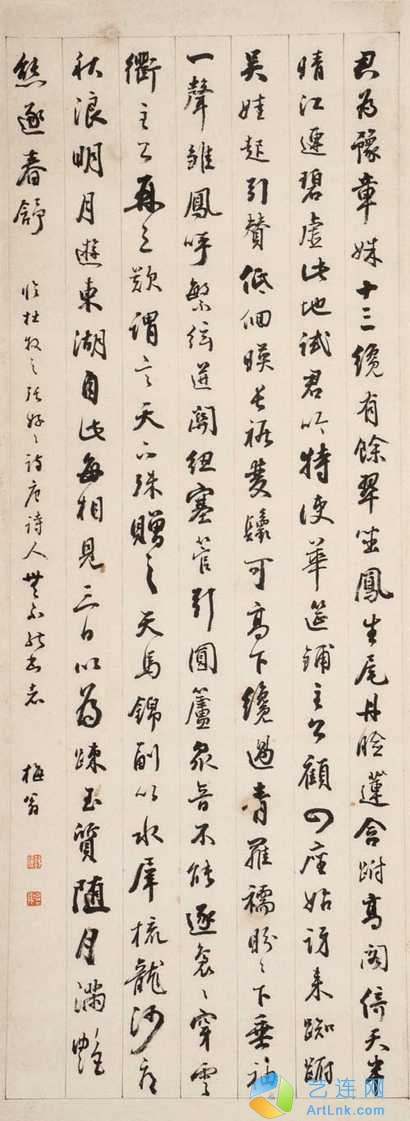 君為豫章姝十三纔有餘翠茁鳳生尾丹臉蓮含跗高閣倚天半
晴江連碧虛此地試君唱特使華筵鋪主公顧四座始訝來踟躕
吳娃起引贊低佪暎長裾雙鬟可高下纔過青羅襦盼〻下垂袖
一聲雛鳳呼繁絃迸關紐塞管引圓蘆衆音不能逐裊〻穿雲
衢主公再三歎謂言天下殊贈之天馬錦副以水犀梳龍沙看
秋浪明月遊東湖自此每相見三日以為疎玉質随月滿艷
態逐春舒
臨杜牧之張好〻詩唐詩人無不能書者 梅翁
艺连网
ArtLnk.com